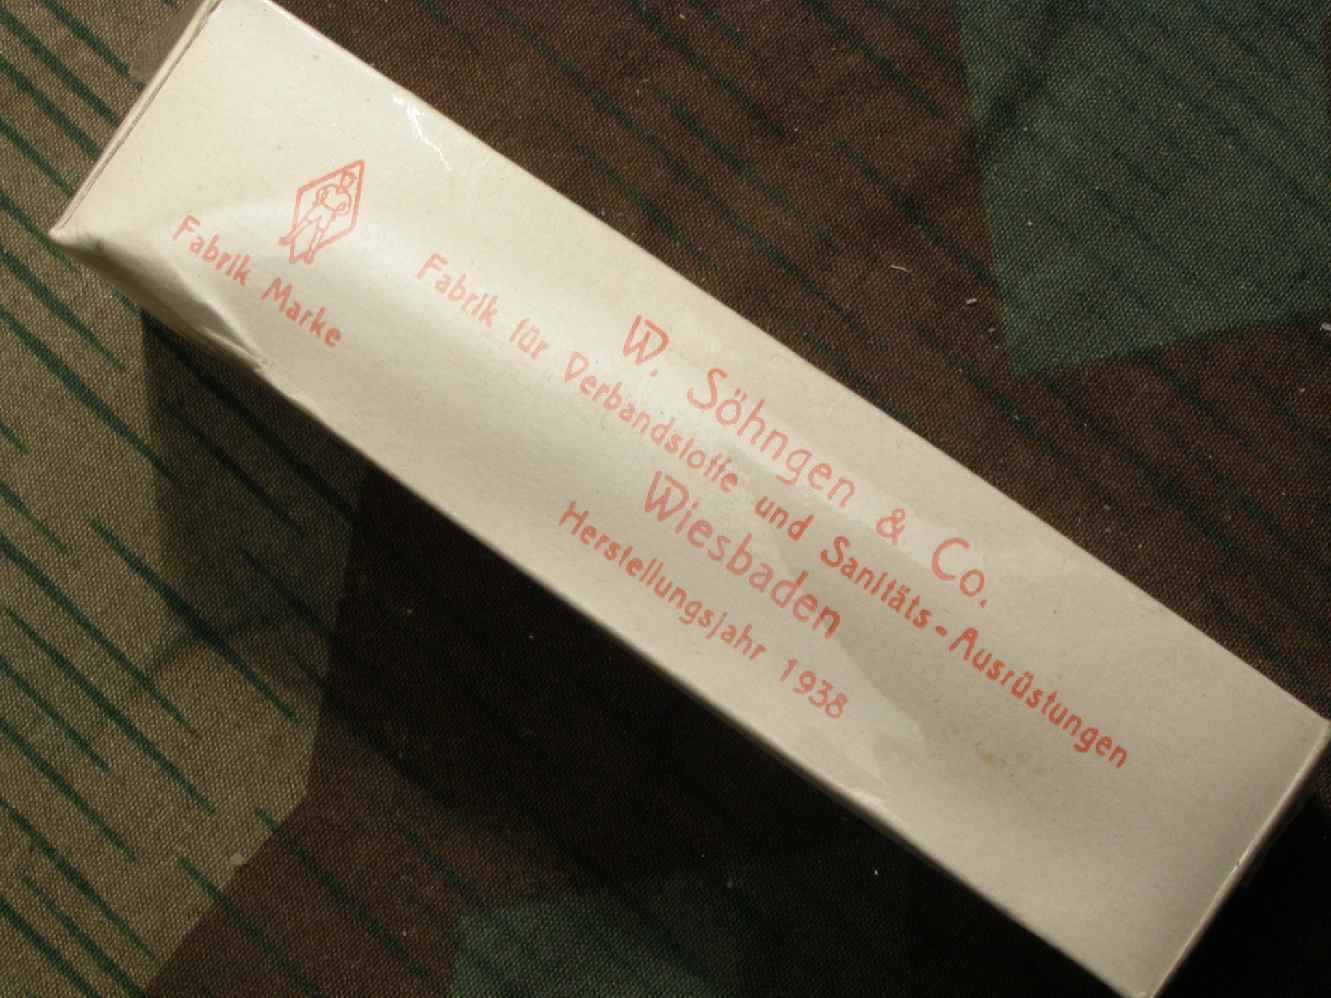 Fabrik Marke
W. Söhngen & Co.
Fabrik für Verbandstoffe und Sanitäts-Ausrüstungen
Wiesbaden
Herstellungsjahr 1938